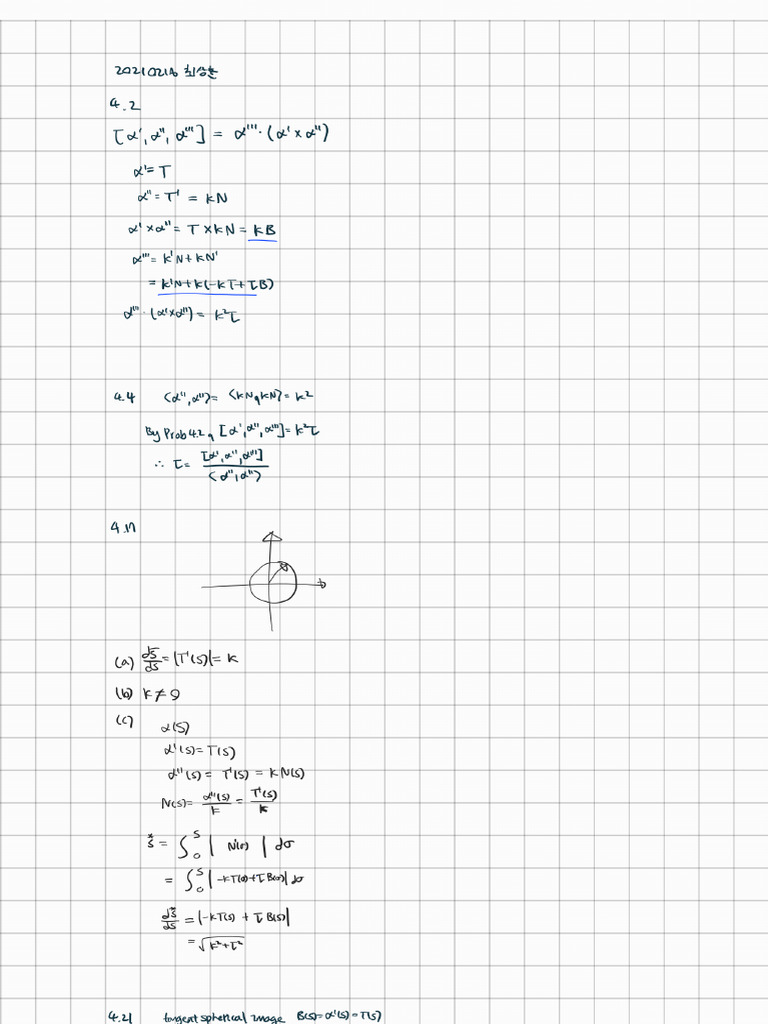 최상훈
4.2
[α', α'', α'''] = α'''·(α' × α'')
α' = T
α'' = T' = kN
α' × α'' = T × kN = kB
α''' = k'N + kN'
= k'N + k(-kT + τB)
α'''·(α'×α'') = k²τ
4.4 ⟨α'', α''⟩ = ⟨kN, kN⟩ = k²
By Prob 4.2, [α', α'', α'''] = k²τ
∴ τ = [α', α'', α'''] / ⟨α'', α''⟩
(a) ds̄/ds = |T'(s)| = k
(b) k ≠ 0
(c) α(s)
α'(s) = T(s)
α''(s) = T'(s) = kN(s)
N(s) = α''(s)/k = T'(s)/k
s̃ = ∫₀ˢ | N'(σ) | dσ
= ∫₀ˢ |-kT(σ) + τB(σ)| dσ
ds̃/ds = |-kT(s) + τB(s)|
= √(k²+τ²)
4.21 tangent spherical image B(s) = α'(s) = T(s)